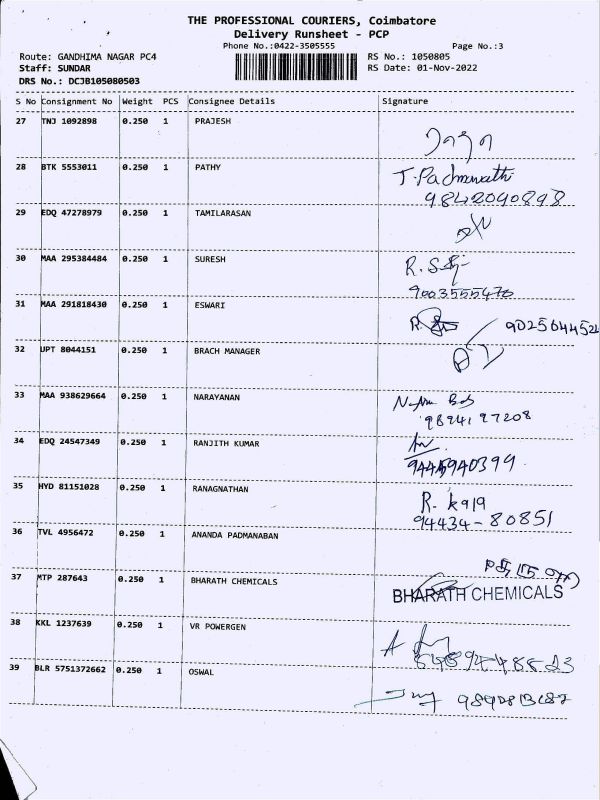 THE PROFESSIONAL COURIERS, Coimbatore
Delivery Runsheet - PCP
Phone No.:0422-3505555
Page No.:3
Route: GANDHIMA NAGAR PC4
RS No.: 1050805
Staff: SUNDAR
RS Date: 01-Nov-2022
DRS No.: DCJB105080503
S No Consignment No Weight PCS Consignee Details Signature
27 TNJ 1092898 0.250 1 PRAJESH
28 BTK 5553011 0.250 1 PATHY T. Padmavathi
9842090898
29 EDQ 47278979 0.250 1 TAMILARASAN
30 MAA 295384484 0.250 1 SURESH
9003555470
31 MAA 291818430 0.250 1 ESWARI
32 UPT 8044151 0.250 1 BRACH MANAGER
33 MAA 938629664 0.250 1 NARAYANAN
98941 97208
34 EDQ 24547349 0.250 1 RANJITH KUMAR
35 HYD 81151028 0.250 1 RANAGNATHAN R. kala
94434-80851
36 TVL 4956472 0.250 1 ANANDA PADMANABAN
37 MTP 287643 0.250 1 BHARATH CHEMICALS BHARATH CHEMICALS
38 KKL 1237639 0.250 1 VR POWERGEN
39 BLR 5751372662 0.250 1 OSWAL